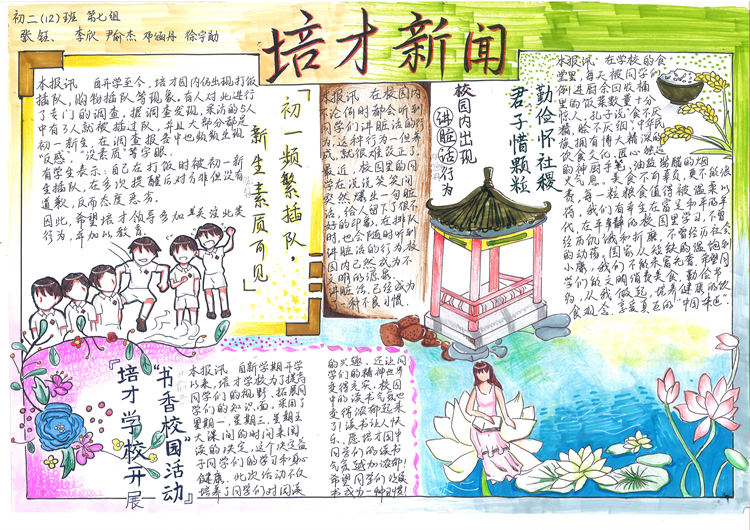 初二(12)班 第七组
张钰、李欣 尹俞杰 邓涵丹 徐宇勋
培才新闻
本报讯 自开学至今,培才园内仍出现打饭
插队,购物插队等现象,有人对此进行
了专门的调查。据调查发现,采访的5人
中有3人就被插过队,并且大部分都是
初一新生,在调查报告中也频频出现
“反感”、“没素质”等字眼。
有学生表示:自己在打饭时被初一新
生插队,在多次提醒后对方非但没有
道歉,反而态度恶劣。
因此,希望培才领导多加关注此类
行为,并加以教育。
「初一频繁插队,
新生素质可见」
本报讯 在校园内
不论何时都会听到
同学们讲脏话的行
为,这种行为一但养
成,就很难改正了。
最近,校园里的同
学在说说笑笑间
突然爆出一句脏
话,给人留下了很不
好的印象。在排队
时,也会随时听到
讲脏话的行为,校
园内已然成为不
文明的源泉。
讲脏话,已经成为
一种不良习惯.
校园内出现
讲脏话行为
勤俭怀社稷
君子惜颗粒
本报讯 在学校的食
堂里,每天被同学们
倒进厨余回收桶
里的饭菜数量十分
惊人,孔子说“食不厌
精,脍不厌细”.中华民
族拥有博大精深的
饮食文化.匠心独运
的神厨手笔,油盐酱醋的烟
火气息。美食不可辜负,更不能浪
费,每一粒粮食值得被温柔以
待,我们有幸生在富足和平的年
代,在平静的校园里学习,不曾
经历饥饿和折磨,不曾经历社会
的动荡,国家从连续的温饱到
小康,我们不能未富先奢.希望同
学们能文明消费美食,勤俭节
约,从我做起,优秀健康的饮
食观念,怎爱真正的“中国味道”.
“书香校园活动”
『培才学校开展
本报讯 自新学期开学
以来,培才学校为了提高
同学们的视野,拓展同
学们的知识面,采用了
星期一、星期三、星期五
大课间的时间来阅
读的决定,这个决定益
于同学们的学习和身心
健康.此次活动不仅
培养了同学们对阅读
的兴趣,还让同
学们的精神世界
变得充实.校园
中的读书气氛也
变得浓郁起来
了!读书让人快
乐、愿培才园中
同学们的读书
气氛越加浓郁!
希望同学们让读
书成为一种习惯!